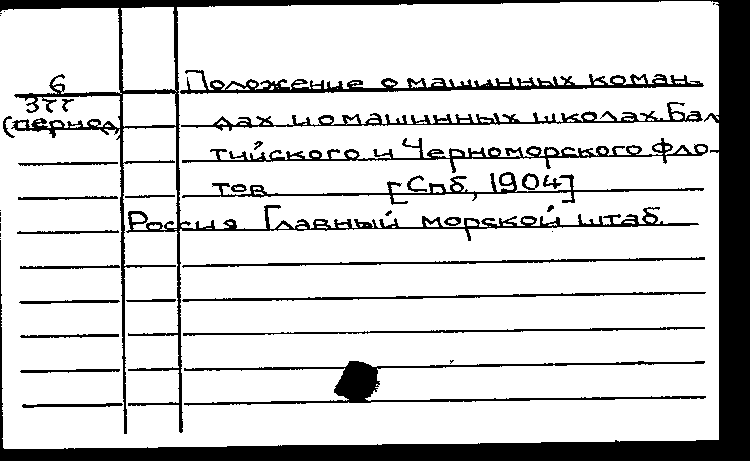 6
377
(период)
Положение о машинных коман-
дах и о машинных школах Бал
тийского и Черноморского фло-
тов [Спб., 1904]
Россия Главный морской штаб.